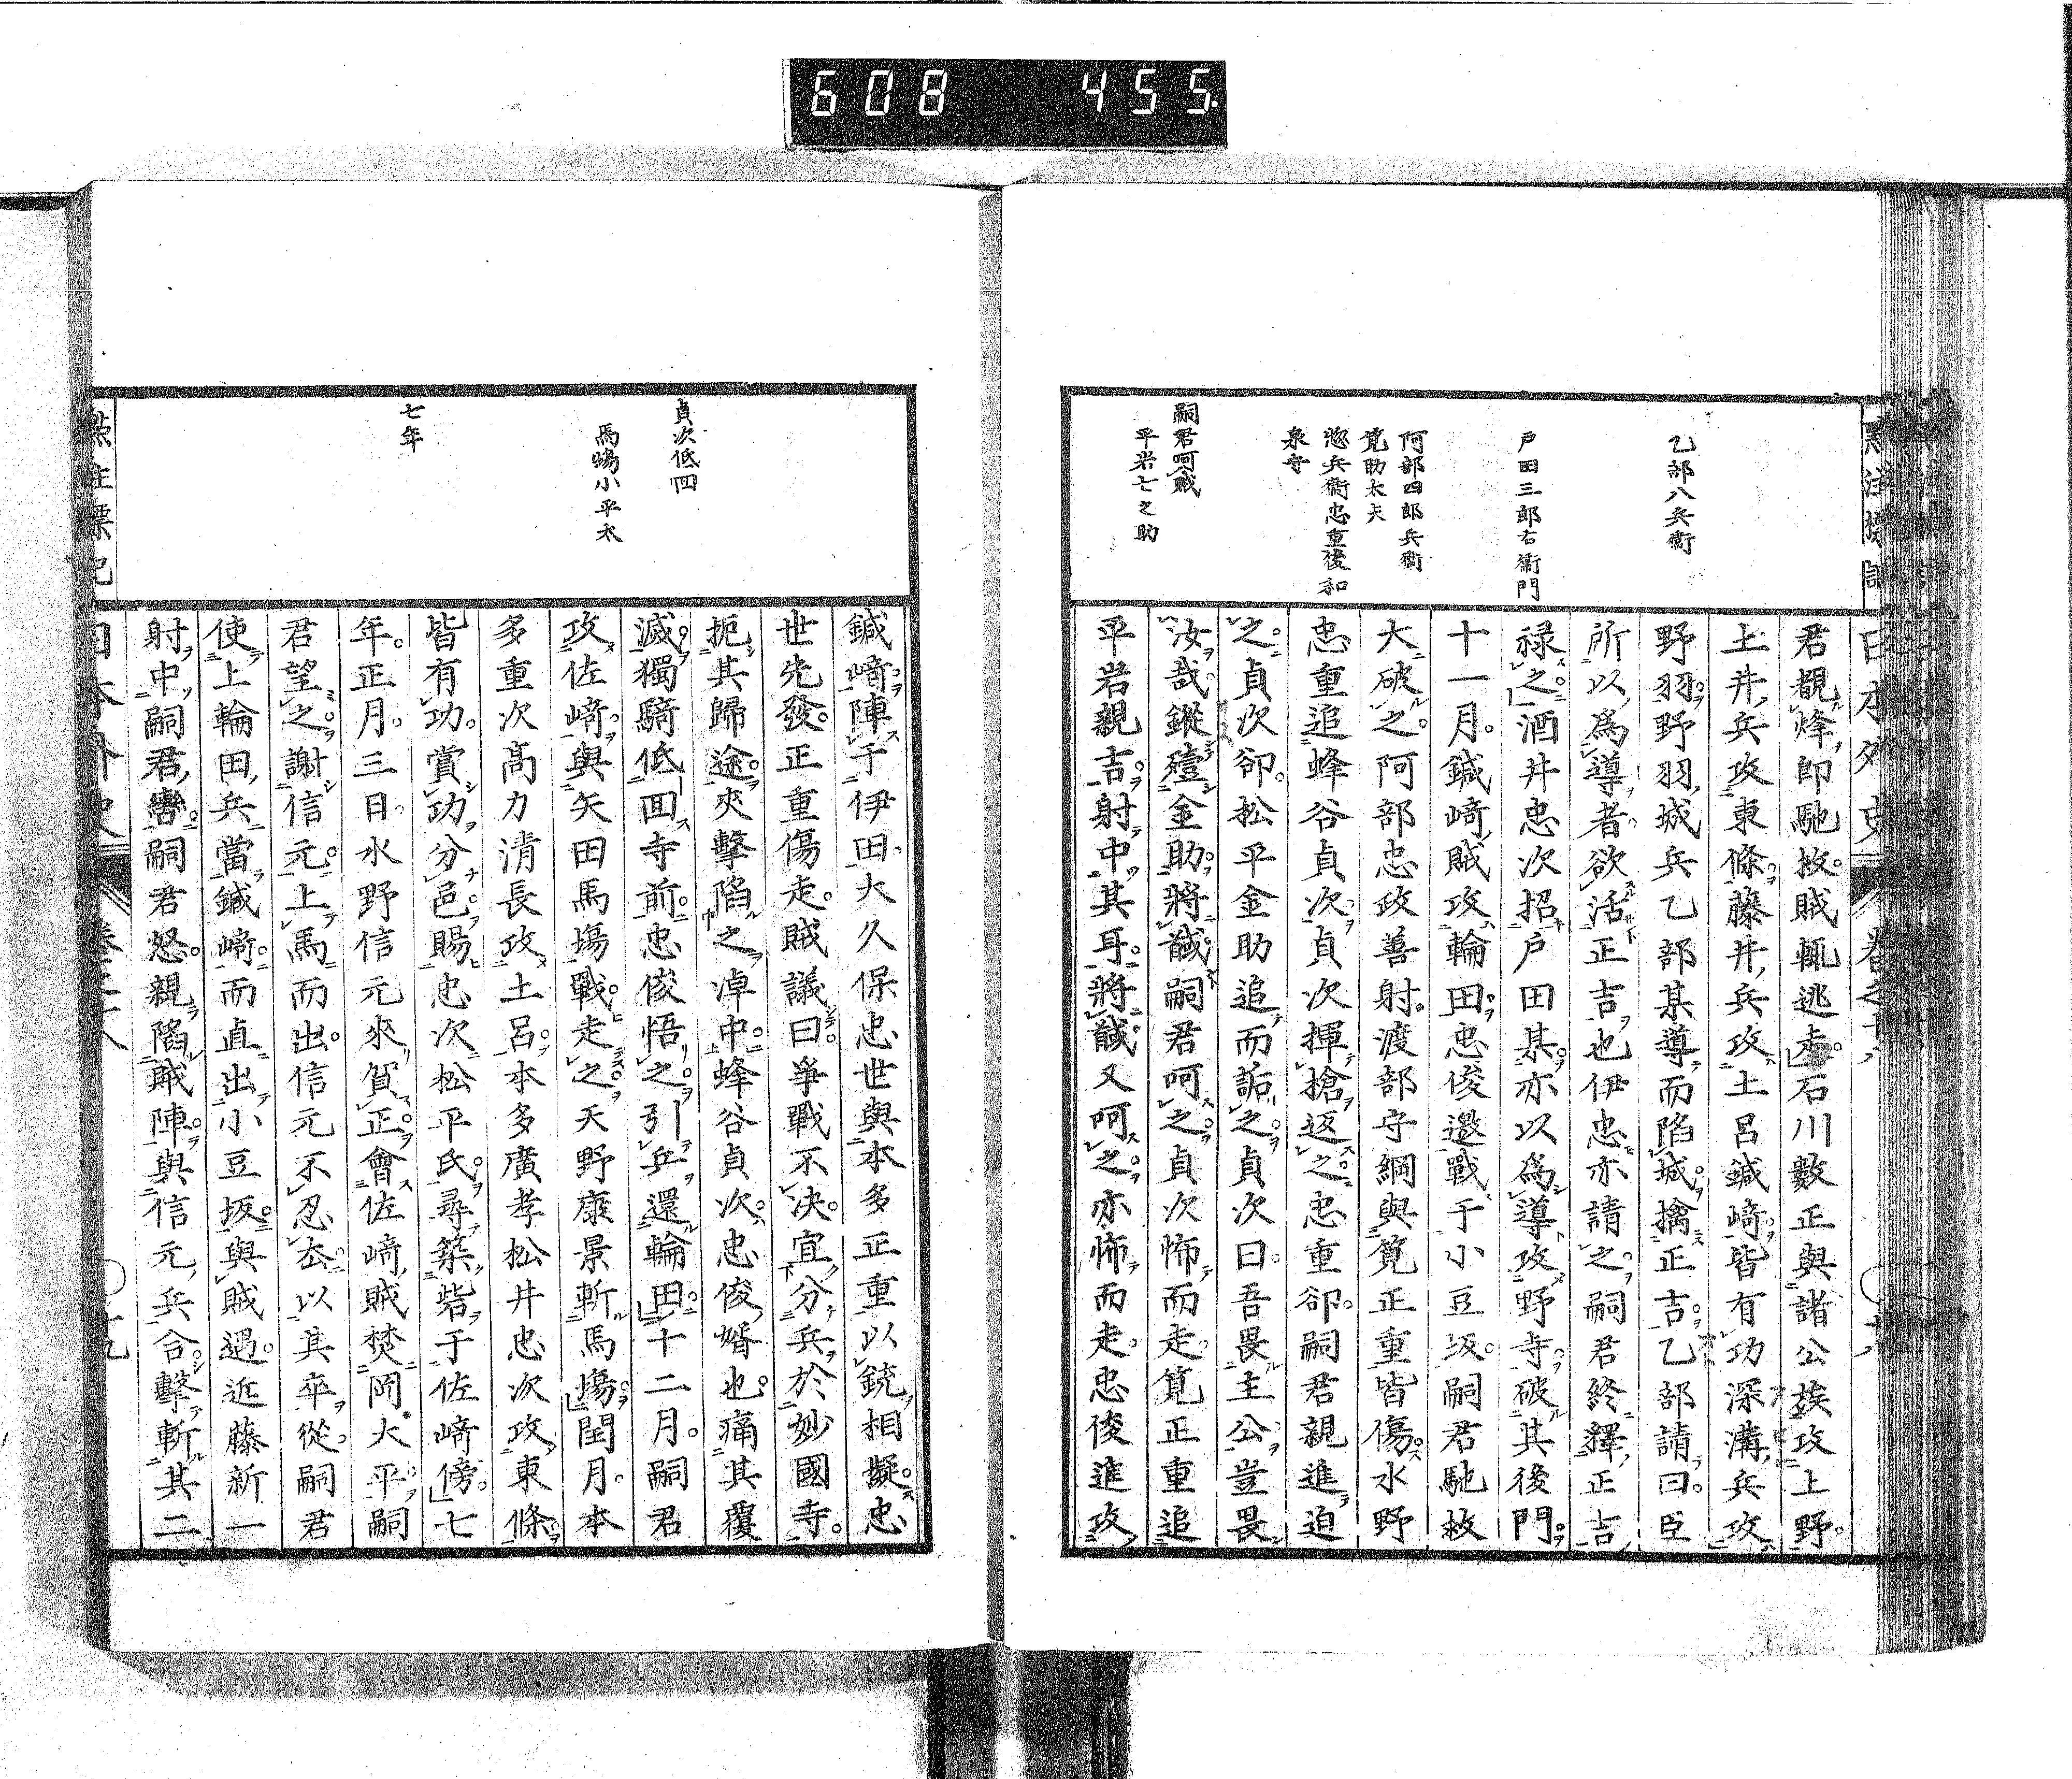 608 455.
乙部八兵衞
戸田三郎右衞門
阿部四郎兵衞
筧助太夫
惣兵衞忠重後和
泉守
嗣君呵賊
平岩七之助
君覩烽即馳救賊輒逃走石川數正與諸公族攻上野
土井兵攻東條藤井兵攻土呂鍼﨑皆有功深溝兵攻
野羽野羽城兵乙部某導而陷城擒正吉乙部請曰臣
所以爲導者欲活正吉也伊忠亦請之嗣君終釋正吉
禄之酒井忠次招戸田某亦以爲導攻野寺破其後門
十一月鍼﨑賊攻輪田忠俊邀戰于小豆坂嗣君馳救
大破之阿部忠政善射渡部守綱與筧正重皆傷水野
忠重追蜂谷貞次貞次揮搶返之忠重卻嗣君親進迫
之貞次卻松平金助追而詬之貞次曰吾畏主公豈畏
汝哉鏦殪金助將馘嗣君呵之貞次怖而走筧正重追
平岩親吉射中其耳將馘又呵之亦怖而走忠俊進攻
貞次低回
馬塲小平太
七年
鍼﨑陣于伊田大久保忠世與本多正重以銃相擬忠
世先發正重傷走賊議曰爭戰不决宜分兵於妙國寺
扼其歸途夾擊陷之淖中蜂谷貞次忠俊婿也痛其覆
滅獨騎低回寺前忠俊悟之引兵還輪田十二月嗣君
攻佐﨑與矢田馬塲戰走之天野康景斬馬塲閏月本
多重次髙力清長攻土呂本多廣孝松井忠次攻東條
皆有功賞功分邑賜忠次松平氏尋築砦于佐﨑傍七
年正月三日水野信元來賀正會佐﨑賊焚岡大平嗣
君望之謝信元上馬而出信元不忍去以其卒從嗣君
使上輪田兵當鍼﨑而直出小豆坂與賊遇近藤新一
射中嗣君轡嗣君怒親陷賊陣與信元兵合擊斬其二